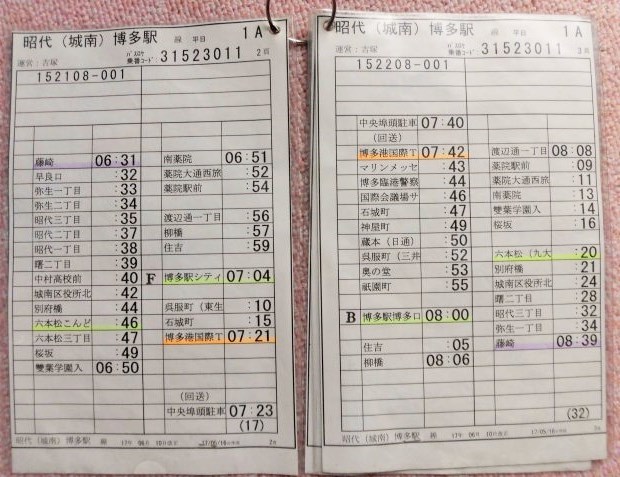 昭代（城南）博多駅 線 平日 1A
運営：吉塚 乗番コード： 31523011 2頁
152108-001
藤崎 06:31
早良口 :32
弥生一丁目 :33
弥生二丁目 :34
昭代三丁目 :35
昭代二丁目 :37
昭代一丁目 :38
曙二丁目 :39
中村高校前 :40
城南区役所北 :42
別府橋 :44
六本松こんど :46
六本松三丁目 :47
桜坂 :49
雙葉学園入 06:50
南薬院 06:51
薬院大通西旅 :52
薬院駅前 :54
渡辺通一丁目 :56
柳橋 :57
住吉 :59
F 博多駅シティ 07:04
呉服町（東生 :10
石城町 :15
博多港国際T 07:21
（回送）
中央埠頭駐車 07:23
(17)
昭代（城南）博多駅 線 17年 06月 10日改正
昭代（城南）博多駅 線 平日 1A
運営：吉塚 乗番コード： 31523011 3頁
152208-001
中央埠頭駐車 07:40
（回送）
博多港国際T 07:42
マリンメッセ :43
博多臨港警察 :44
国際会議場サ :46
石城町 :47
神屋町 :49
蔵本（日通） :50
呉服町（三井 :52
奥の堂 :53
祇園町 :55
B 博多駅博多口 08:00
住吉 :05
柳橋 08:06
渡辺通一丁目 08:08
薬院駅前 :09
薬院大通西旅 :11
南薬院 :13
雙葉学園入 :14
桜坂 :16
六本松（九大 :20
別府橋 :21
城南区役所北 :24
曙二丁目 :28
昭代三丁目 :32
弥生一丁目 :34
藤崎 08:39
(32)
昭代（城南）博多駅 線 17年 06月 10日改正